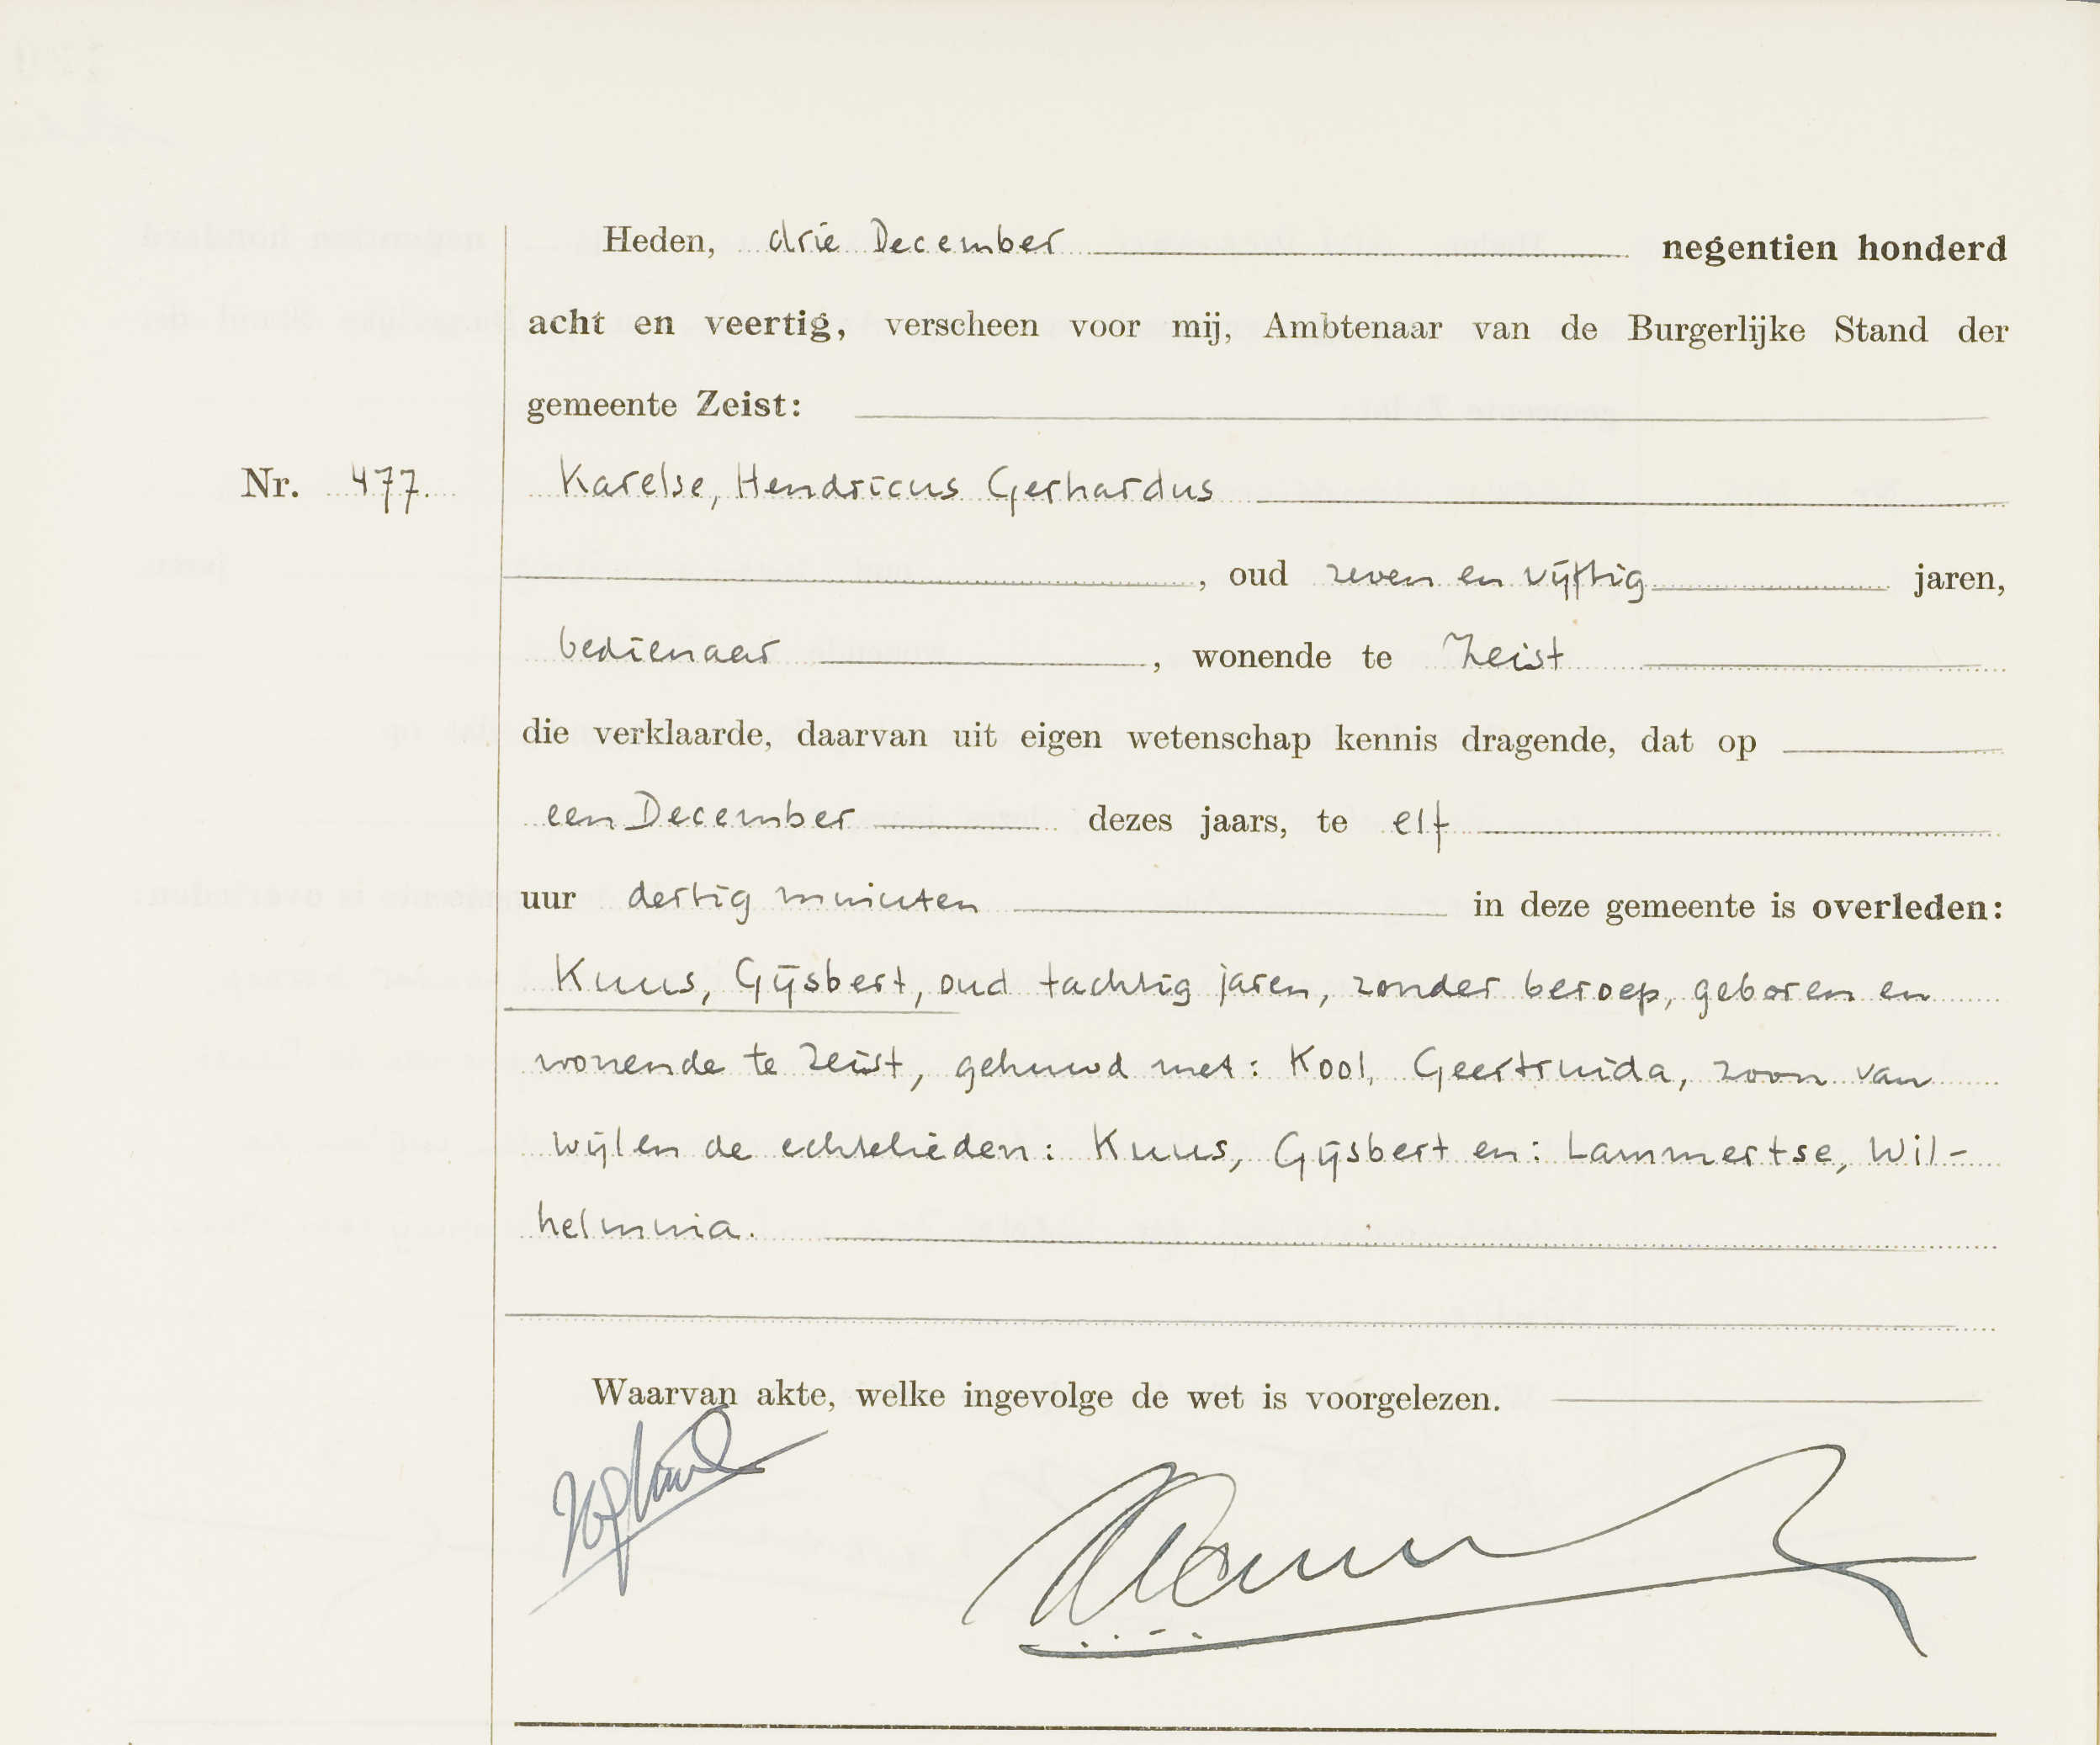 Heden, drie December negentien honderd
acht en veertig, verscheen voor mij, Ambtenaar van de Burgerlijke Stand der
gemeente Zeist:
Nr. 477. Karelse, Hendricus Gerhardus
, oud zeven en vijftig jaren,
bedienaar, wonende te Zeist
die verklaarde, daarvan uit eigen wetenschap kennis dragende, dat op
een December dezes jaars, te elf
uur dertig minuten in deze gemeente is overleden:
Kuus, Gijsbert, oud tachtig jaren, zonder beroep, geboren en
wonende te Zeist, gehuwd met: Kool, Geertruida, zoon van
wijlen de echtelieden: Kuus, Gijsbert en: Lammertse, Wil-
helmina.
Waarvan akte, welke ingevolge de wet is voorgelezen.